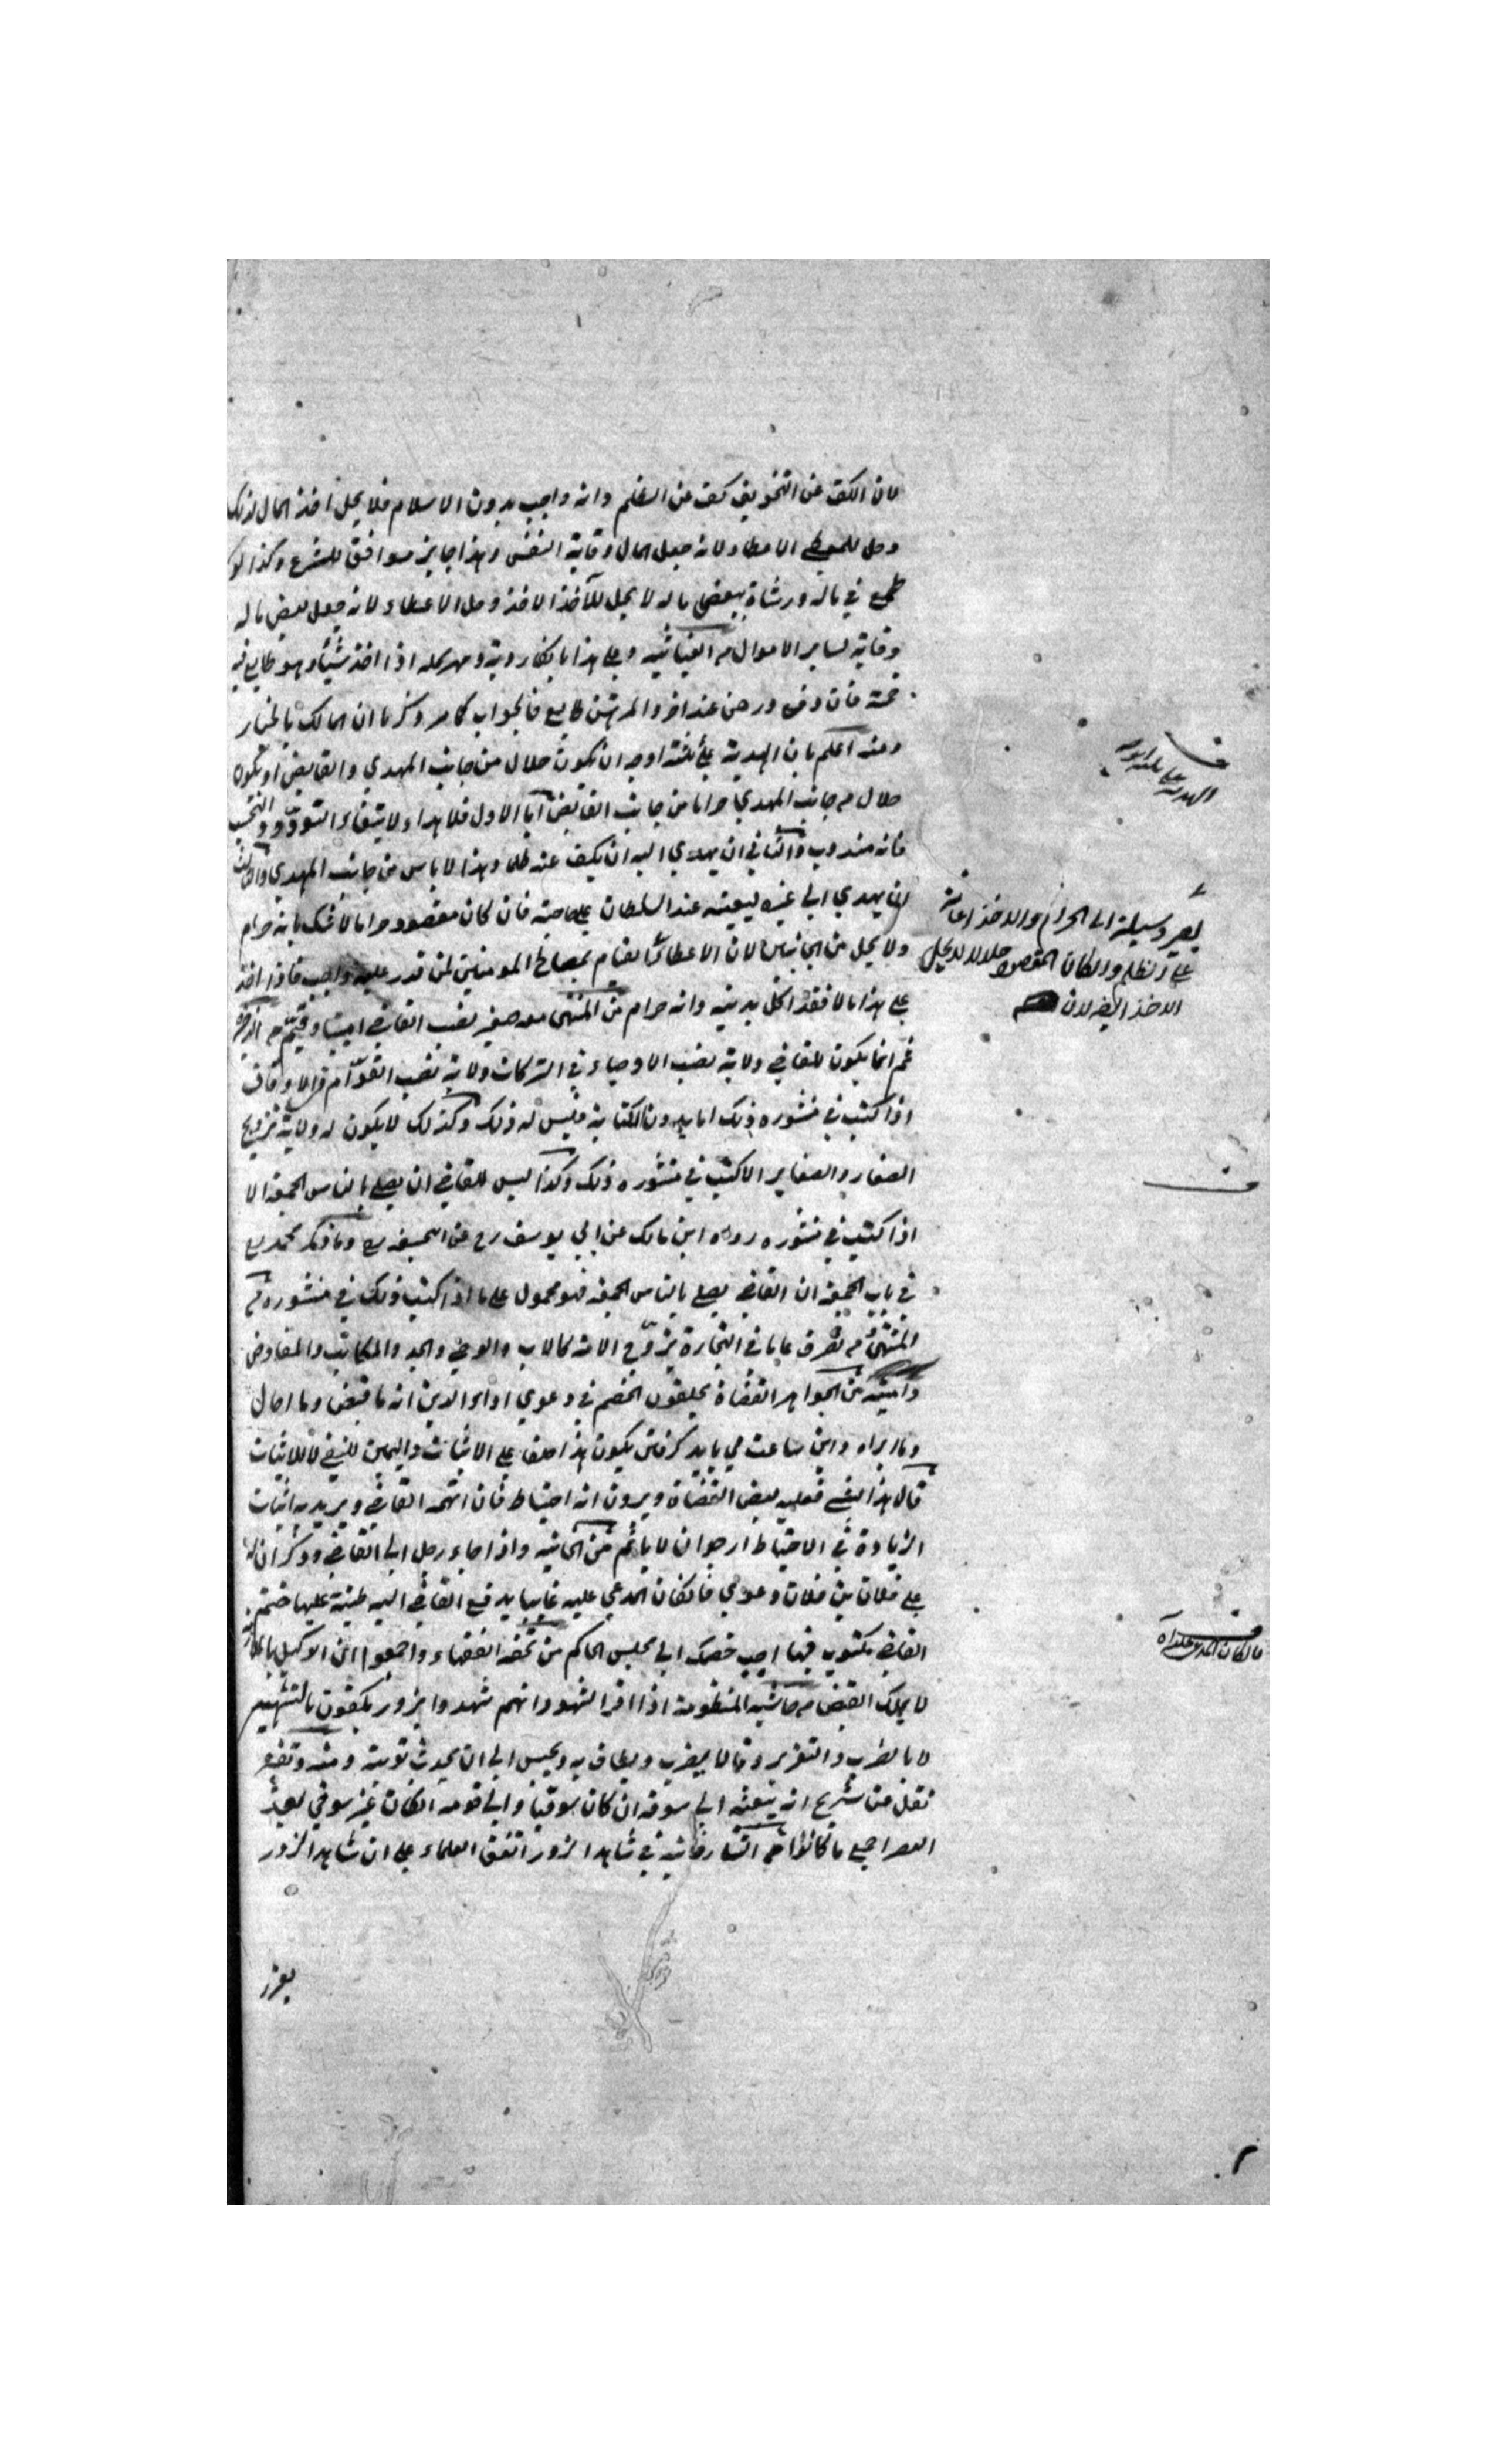 لان الكف عن التخويف كف عن الظلم وانه واجب بدون الاسلام فلا يحل اخذ المال لذلك
وحل للمعطي الاعطاء لانه جعل المال وقاية النفس وهذا جايز موافق للشرع وكذا لو
طمع في ماله ورشاه ببعض ماله لا يحل للآخذ الاخذ وحل الاعطاء لانه جعل بعض ماله
وقاية لساير الاموال من الغياثيه وعلى هذا اذا اخذ شيئا وهو
فان دفع ورهن عند اخر والمرتهن فالجواب كما مر وذكرنا ان المالك بالخيار
ومنه اعلم بان الهدية على ثلثة اوجه ان يكون حلال من جانب المهدي والقابض او يكون
حلال من جانب المهدي حراما من جانب القابض اما الاول فلاهداء لابتغاء التودد والتحبب
فانه مندوب والثاني ان يهدي اليه ان يكف عنه ظلما وهذا لا باس من جانب المهدي والثالث
ان يهدي الى غيره ليعينه عند السلطان على حاجته فان كان مقصوده حراما لا شك بانه حرام
ولا يحل من الجانبين لان الاعطاء القيام بمصالح المومنين لمن قدر عليه واجب فاذا اخذ
على هذا مالا فقد اكل بدينه وانه حرام من المنتهى نصب القاضي امينا وقيم من الذخيرة
ثم انما يكون للقاضي ولاية نصب الاوصياء في التركات ولاية نصب القوّام في الاوقاف
اذا كتب في منشوره ذلك اما بدون الكتابة فليس له ذلك وكذلك لا يكون له ولاية تزويج
الصغار والصغاير الا كتب في منشوره ذلك وكذا ليس للقاضي ان يصلي بالناس الجمعة الا
اذا كتب في منشوره رواه ابن مالك عن ابي يوسف رح عن ابي حنيفه رح وما ذكر محمد رح
في باب الجمعة ان القاضي يصلي بالناس الجمعة فهو محمول على ما اذا كتب ذلك في منشوره
المنتهى من تصرف عاما في التجارة يزوّج الامه كالاب والوصي والجد والمكاتب والمفاوض
وامينه من الجواهر القضاة يحلفون الخصم في دعوى اداء الدين انه ما قبض وما احال
وما ابراه واين ساعت مي بايد كرفتن يكون هذا حلفا على الاثبات واليمين للنفي لا للاثبات
قال هذا فعليه بعض القضاة ويرون انه احتياط فان اتهمه القاضي ويريد به اثبات
الزيادة في الاحتياط ارجوا ان لا ياثم من الخانيه واذا جاء رجل الى القاضي وذكر ان له
على فلان بن فلان دعوى فان كان المدعي عليه غايبا يدفع القاضي اليه طينة عليها ختم
القاضي مكتوب فيها اجب خصمك الى مجلس الحاكم من تحفه الفقهاء واجمعوا ان الوكيل
لا يملك القبض من حاشيه المنظومة اذا اقر الشهود انهم شهدوا بزور يكتفون بالتشهير
لا بالضرب والتعزير وقالا يضرب ويطاف به ويحبس الى ان يحدث توبته ومنه
نقل عن شريح انه يبعثه الى سوقه ان كان سوقيا والى قومه ان كان غير سوقي بعد
العصر اجمع ما كانوا من التتارخانيه في شاهد الزور اتفق العلماء على ان شاهد الزور
يعزر
الهدية على ثلثة اوجه
يصير وسيلة الى الحرام والاخذ اعانة
على الظلم وان كان المقصود حلالا لا يحل
الاخذ ايضا لان
ف
فان كان المدعي عليه